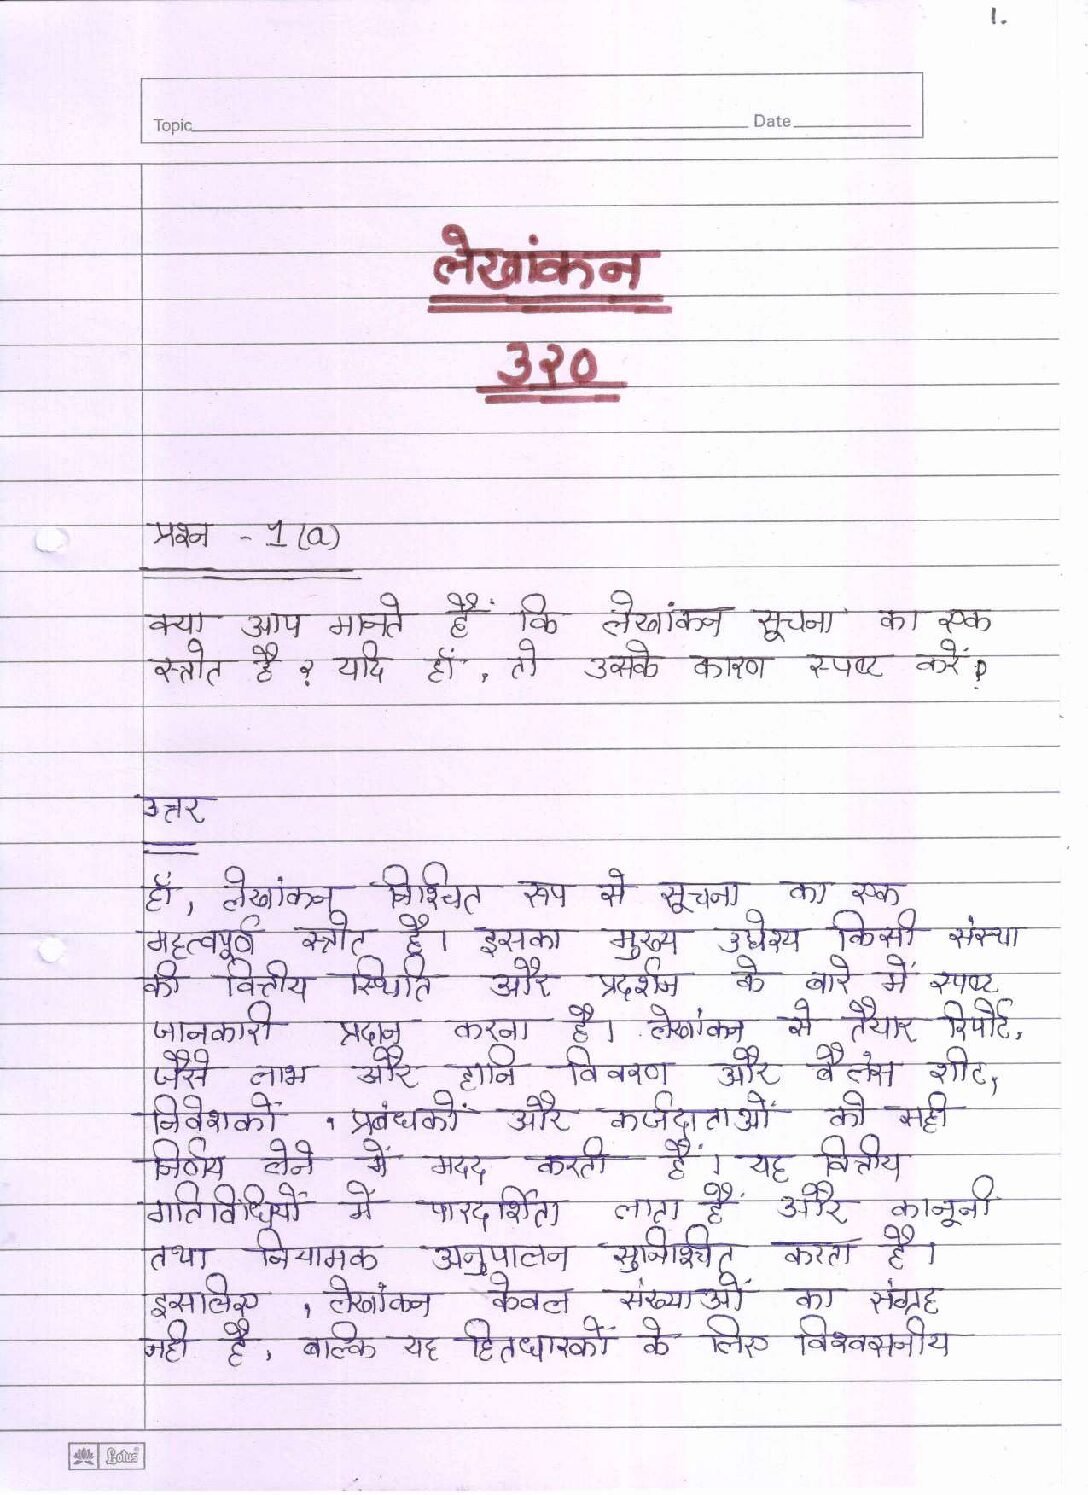 1.
Topic Date
लेखांकन
३२०
प्रश्न - 1(a)
क्या आप मानते हैं कि लेखांकन सूचना का एक
स्त्रोत है ? यदि हाँ, तो उसके कारण स्पष्ट करें?
उत्तर
हाँ, लेखांकन निश्चित रूप से सूचना का एक
महत्वपूर्ण स्त्रोत है। इसका मुख्य उद्येश्य किसी संस्था
की वित्तीय स्थिति और प्रदर्शन के बारे में स्पष्ट
जानकारी प्रदान करना है। लेखांकन से तैयार रिपोर्ट,
जैसे लाभ और हानि विवरण और बैलेंस शीट,
निवेशकों, प्रबंधकों और कर्जदाताओं को सही
निर्णय लेने में मदद करती हैं। यह वित्तीय
गतिविधियों में पारदर्शिता लाता हैं और कानूनी
तथा नियामक अनुपालन सुनिश्चित करता है।
इसलिए, लेखांकन केवल संख्याओं का संग्रह
नही है, बल्कि यह हितधारकों के लिए विश्वसनीय
Lotus